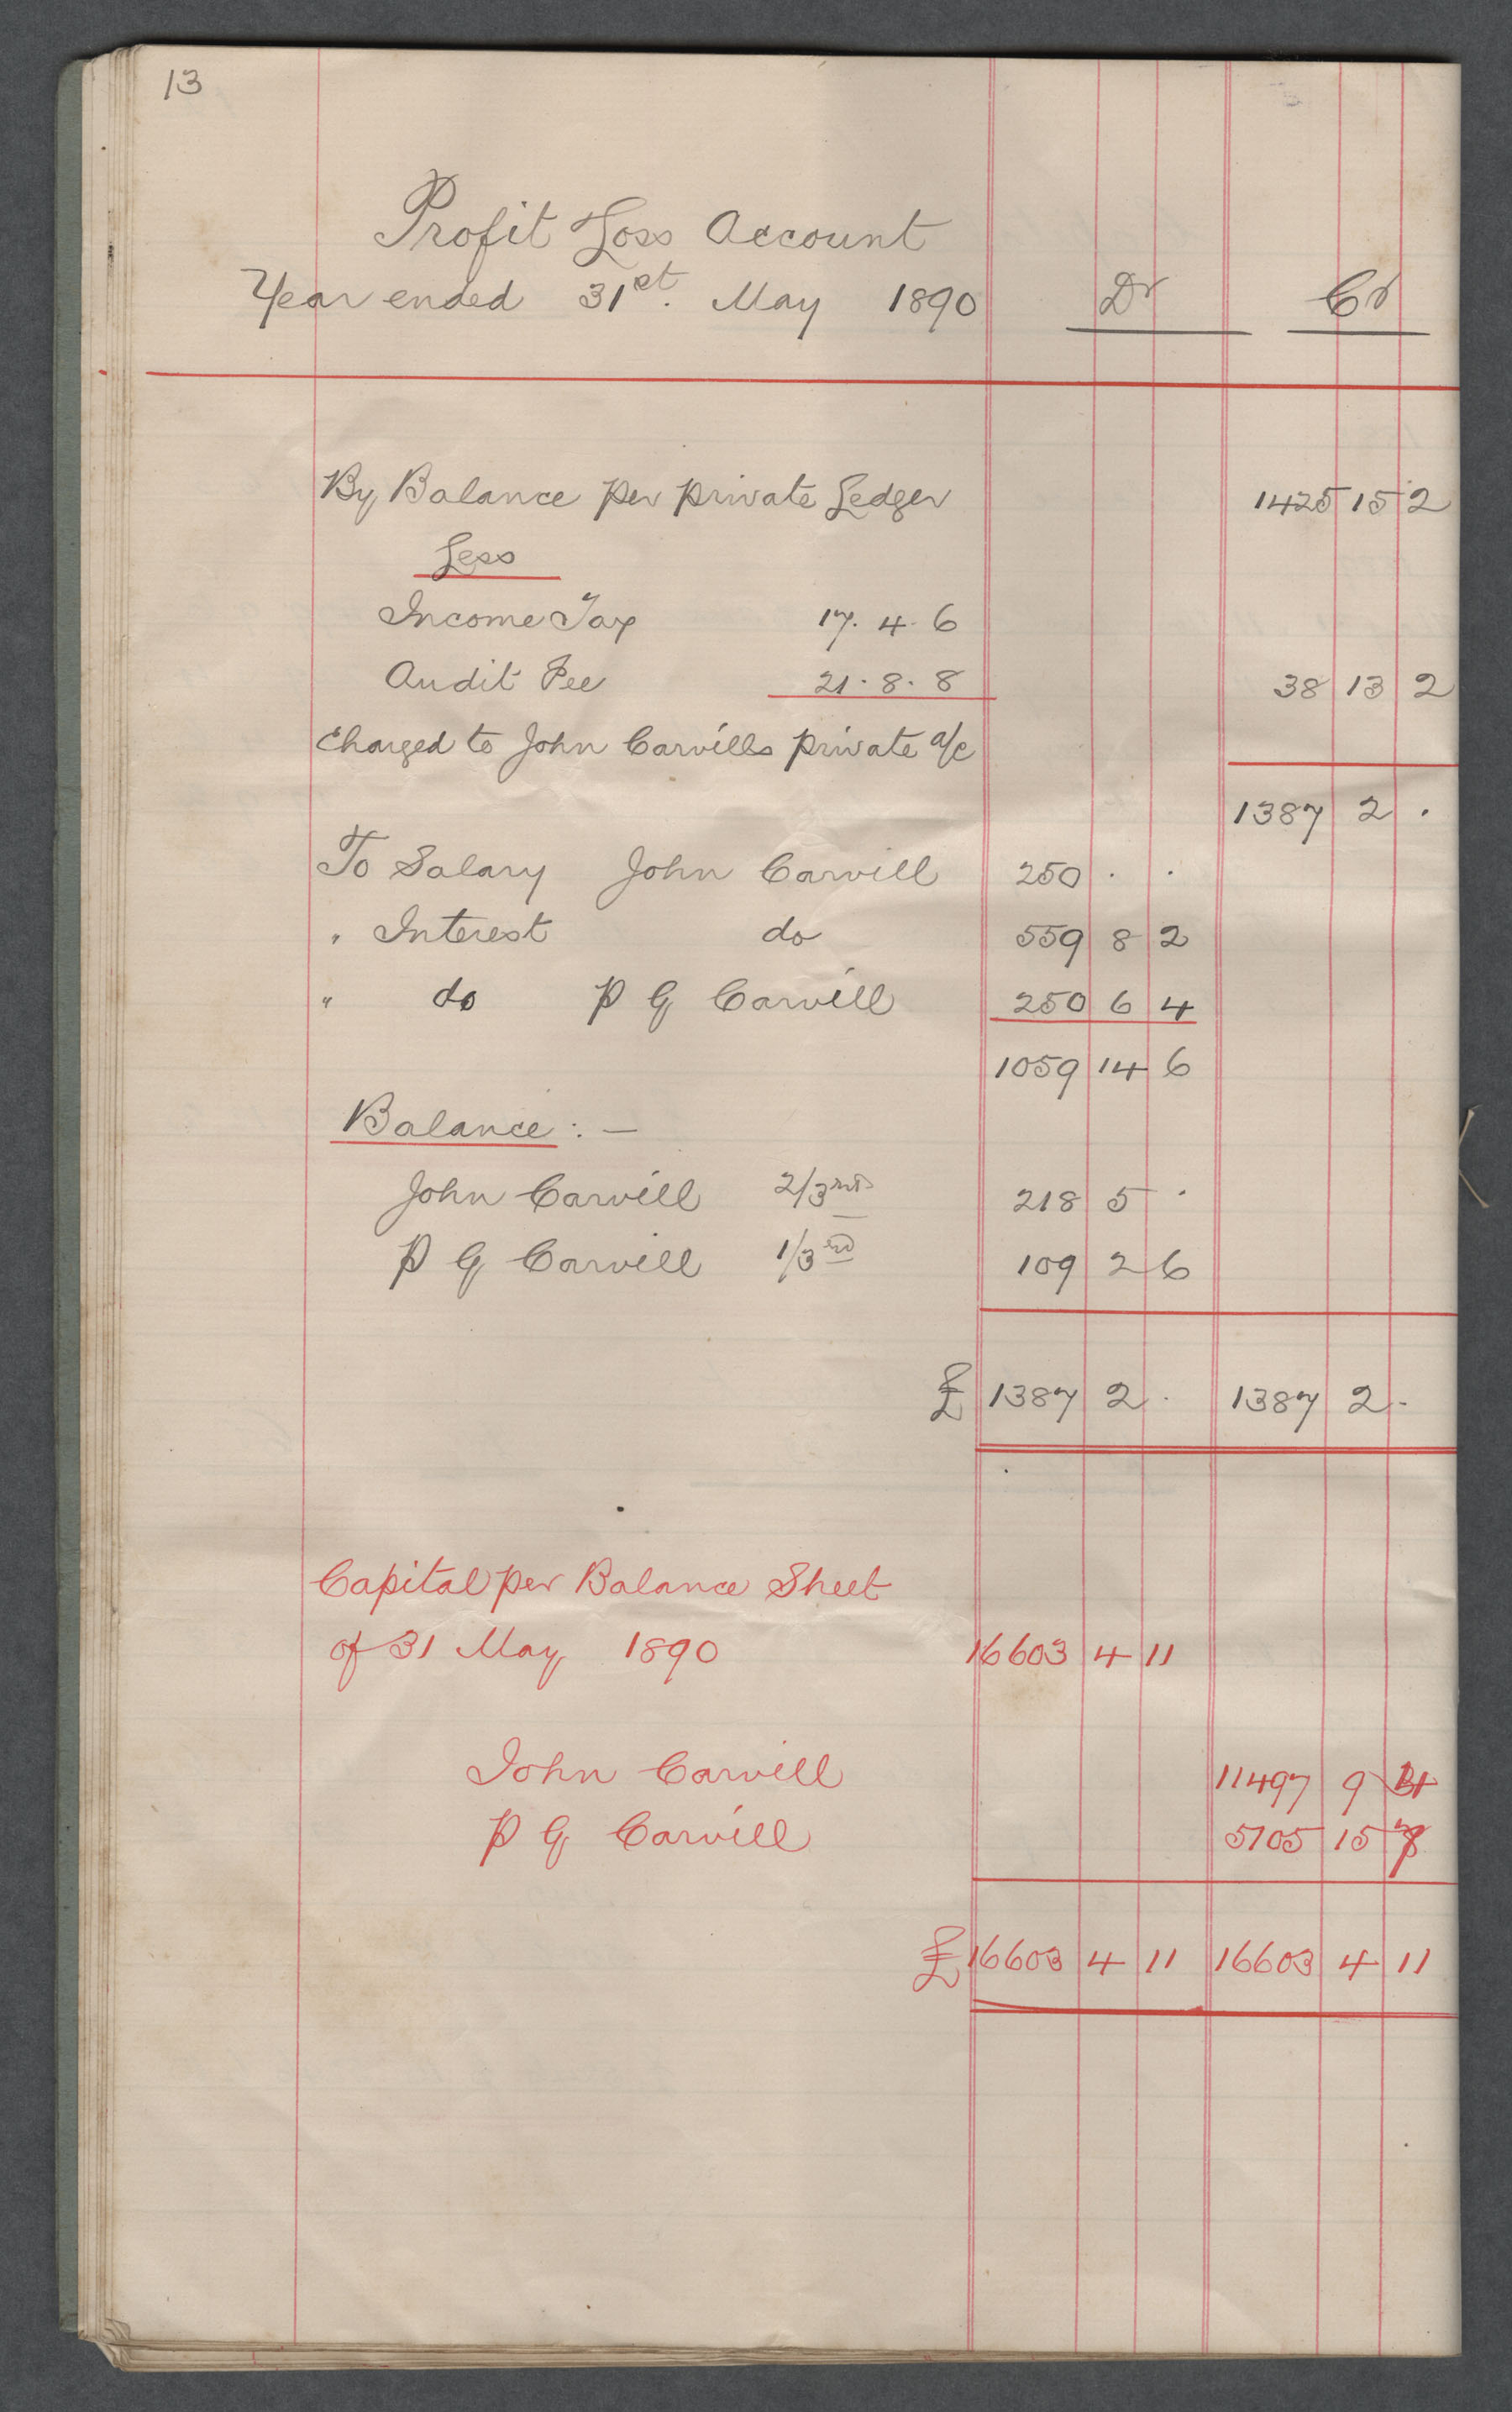 13
Profit Loss Account
Year ended 31st. May 1890 Dr Cr
By Balance per private Ledger 1425 15 2
Less
Income Tax 17. 4. 6
Audit Fee 21. 8. 8 38 13 2
Charged to John Carvills private a/c
1387 2 .
To Salary John Carvill 250 . .
" Interest do 559 8 2
" do P G Carvill 250 6 4
1059 14 6
Balance : —
John Carvill 2/3rds 218 5 .
P G Carvill 1/3rd 109 2 6
£ 1387 2 . 1387 2 .
Capital per Balance Sheet
of 31 May 1890 16603 4 11
John Carvill 11497 9
P G Carvill 5105 15 7
£ 16603 4 11 16603 4 11